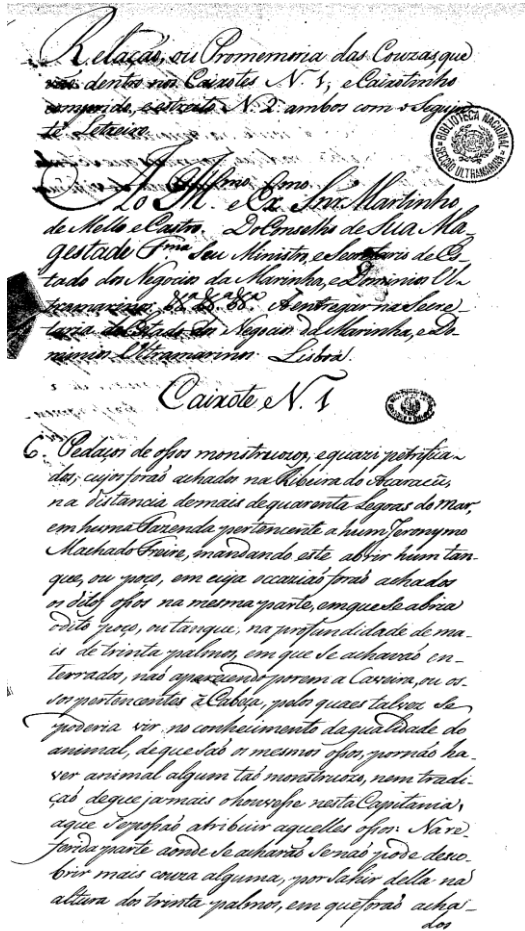 Relação, ou Promemoria das Couzas que
vaõ dentro nos Caixotes N. 1, e Caixotinho
comprido, e estreito N. 2 ambos com o seguin
te Letreiro.
BIBLIOTECA NACIONAL
SECÇÃO ULTRAMARINA
Ao Ill.mo e Ex.mo Snr. Martinho
de Mello e Castro. Do Conselho de Sua Ma_
gestade F.ma Seu Ministro, e Secretario de Es_
tado dos Negocios da Marinha, e Dominios Ul_
tramarinos. &.a &.a &.a A entregar na Secre_
taria de Estado dos Negocios da Marinha, e Do_
minios Ultramarinos. Lisboa.
Caixote N. 1
6. Pedaços de ossos monstruozos, e quazi petrifica_
dos, cujos foraõ achados na Ribeira do Acaracú,
na distancia de mais de quarenta Legoas do mar,
em huma Fazenda pertencente a hum Jeronymo
Machado Freire, mandando este abrir hum tan_
que, ou poço, em cuja occaziaõ foraõ achados
os ditos ossos na mesma parte, em que se abria
o dito poço, ou tanque, na profundidade de ma_
is de trinta palmos, em que se achavaõ en_
terrados, naõ aparecendo porem a Caveira, ou os_
sos pertencentes á Cabeça, pelos quaes talvez se
poderia vir no conhecimento da qualidade do
animal, de que saõ os mesmos ossos, por naõ ha_
ver animal algum taõ monstruozo, nem tradi_
çaõ de que jamais o houvesse nesta Capitania,
a que se possaõ atribuir aquelles ossos. Na re_
ferida parte aonde se acharaõ se naõ pode desco_
brir mais couza alguma, por sahir della na
altura dos trinta palmos, em que foraõ acha_
dos